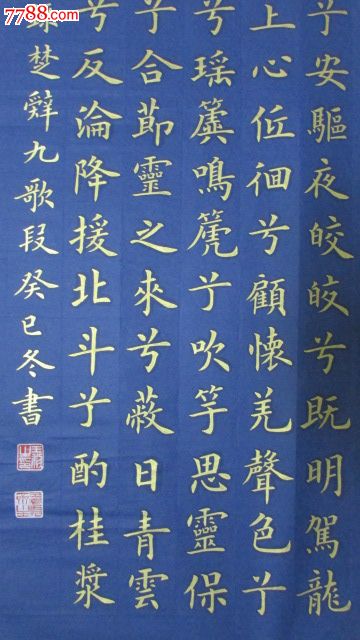 7788.com
兮安驅夜皎皎兮既明駕龍
上心低徊兮顧懷羌聲色兮
兮瑤簴鳴篪兮吹竽思靈保
兮合節靈之來兮蔽日青雲
兮反淪降援北斗兮酌桂漿
錄楚辭九歌段癸巳冬書